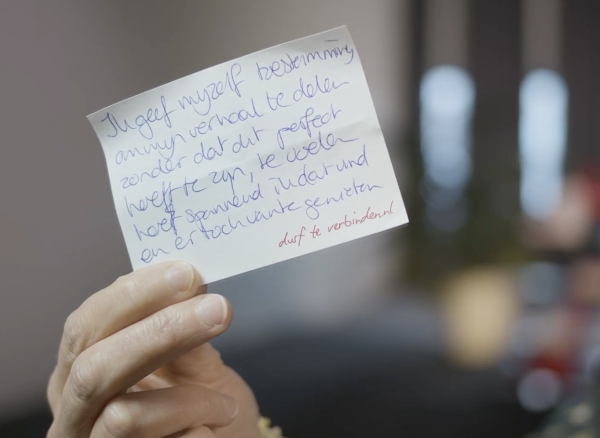 Ik geef myzelf toestemming
om mijn verhaal te delen
zonder dat dit perfect
hoeft te zijn, te voelen
hoe spannend ik dat vind
en er toch van te genieten
durf te verbinden.nl